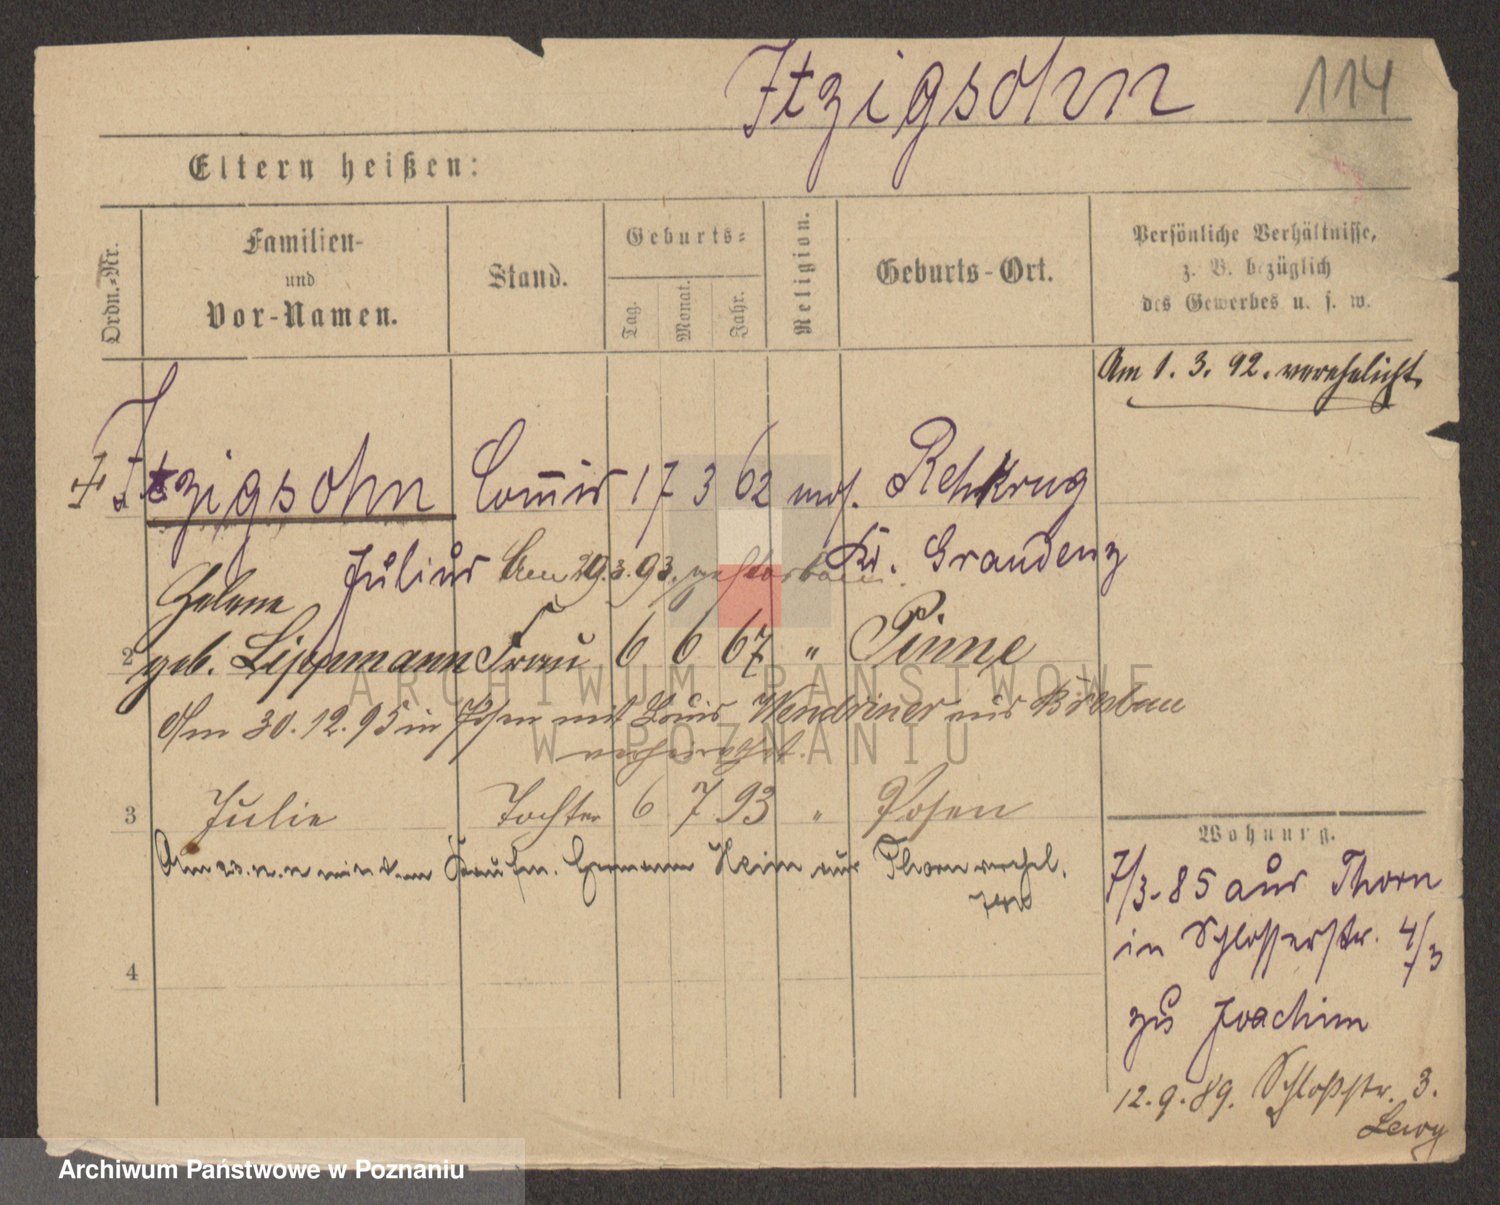 Itzigsohn 114
Eltern heißen:
Ordn.-Nr.
Familien-
und
Vor-Namen.
Stand.
Geburts-
Tag.
Monat.
Jahr.
Religion.
Geburts-Ort.
Persönliche Verhältnisse,
z. B. bezüglich
des Gewerbes u. s. w.
Am 1. 3. 92. verehelicht.
Itzigsohn Com̅is 17 3 62 mos. Rehkrug
Julius Am 29.3.93. gestorben. Kr. Graudenz
Helene
2 geb. Lippmann Frau 6 6 67 " Pinne
Am 30. 12. 95 in Posen mit Louis Wendriner aus Breslau
verheirathet.
3 Julie Tochter 6 7 93 " Posen
Am mit dem Kaufm. Hermann Heim aus Thorn verehel.
4
Wohnung.
7/3.85 aus Thorn
in Schlosserstr. 4/3
zu Joachim
12.9.89. Schloßstr. 3.
Lewy
ARCHIWUM PAŃSTWOWE
W POZNANIU
Archiwum Państwowe w Poznaniu